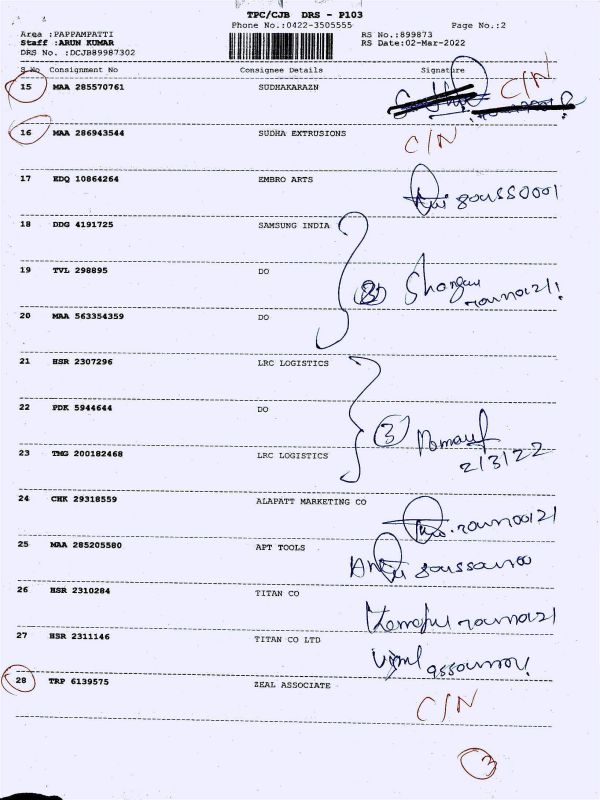 TPC/CJB DRS - P103
Phone No.:0422-3505555 Page No.:2
Area :PAPPAMPATTI RS No.:899873
Staff :ARUN KUMAR RS Date:02-Mar-2022
DRS No. :DCJB89987302
S No Consignment No Consignee Details Signature
15 MAA 285570761 SUDHAKARAZN C/N
16 MAA 286943544 SUDHA EXTRUSIONS C/N
17 EDQ 10864264 EMBRO ARTS
18 DDG 4191725 SAMSUNG INDIA
19 TVL 298895 DO
20 MAA 563354359 DO
21 HSR 2307296 LRC LOGISTICS
22 PDK 5944644 DO
3
23 TMG 200182468 LRC LOGISTICS 2/3/22
24 CHK 29318559 ALAPATT MARKETING CO
25 MAA 285205580 APT TOOLS
26 HSR 2310284 TITAN CO
27 HSR 2311146 TITAN CO LTD
28 TRP 6139575 ZEAL ASSOCIATE C/N
3